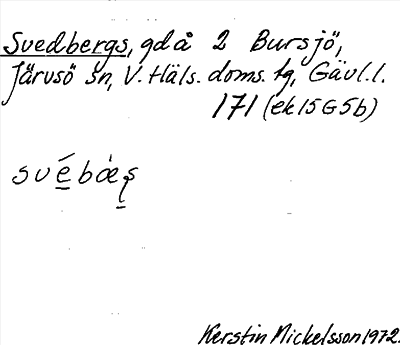 Svedbergs, gd å 2 Bursjö,
Järvsö sn, V. Häls. doms. tg, Gävl. l.
171 (ek 15G5b)
své̲bæ̀ș̲
Kerstin Mickelsson 1972.